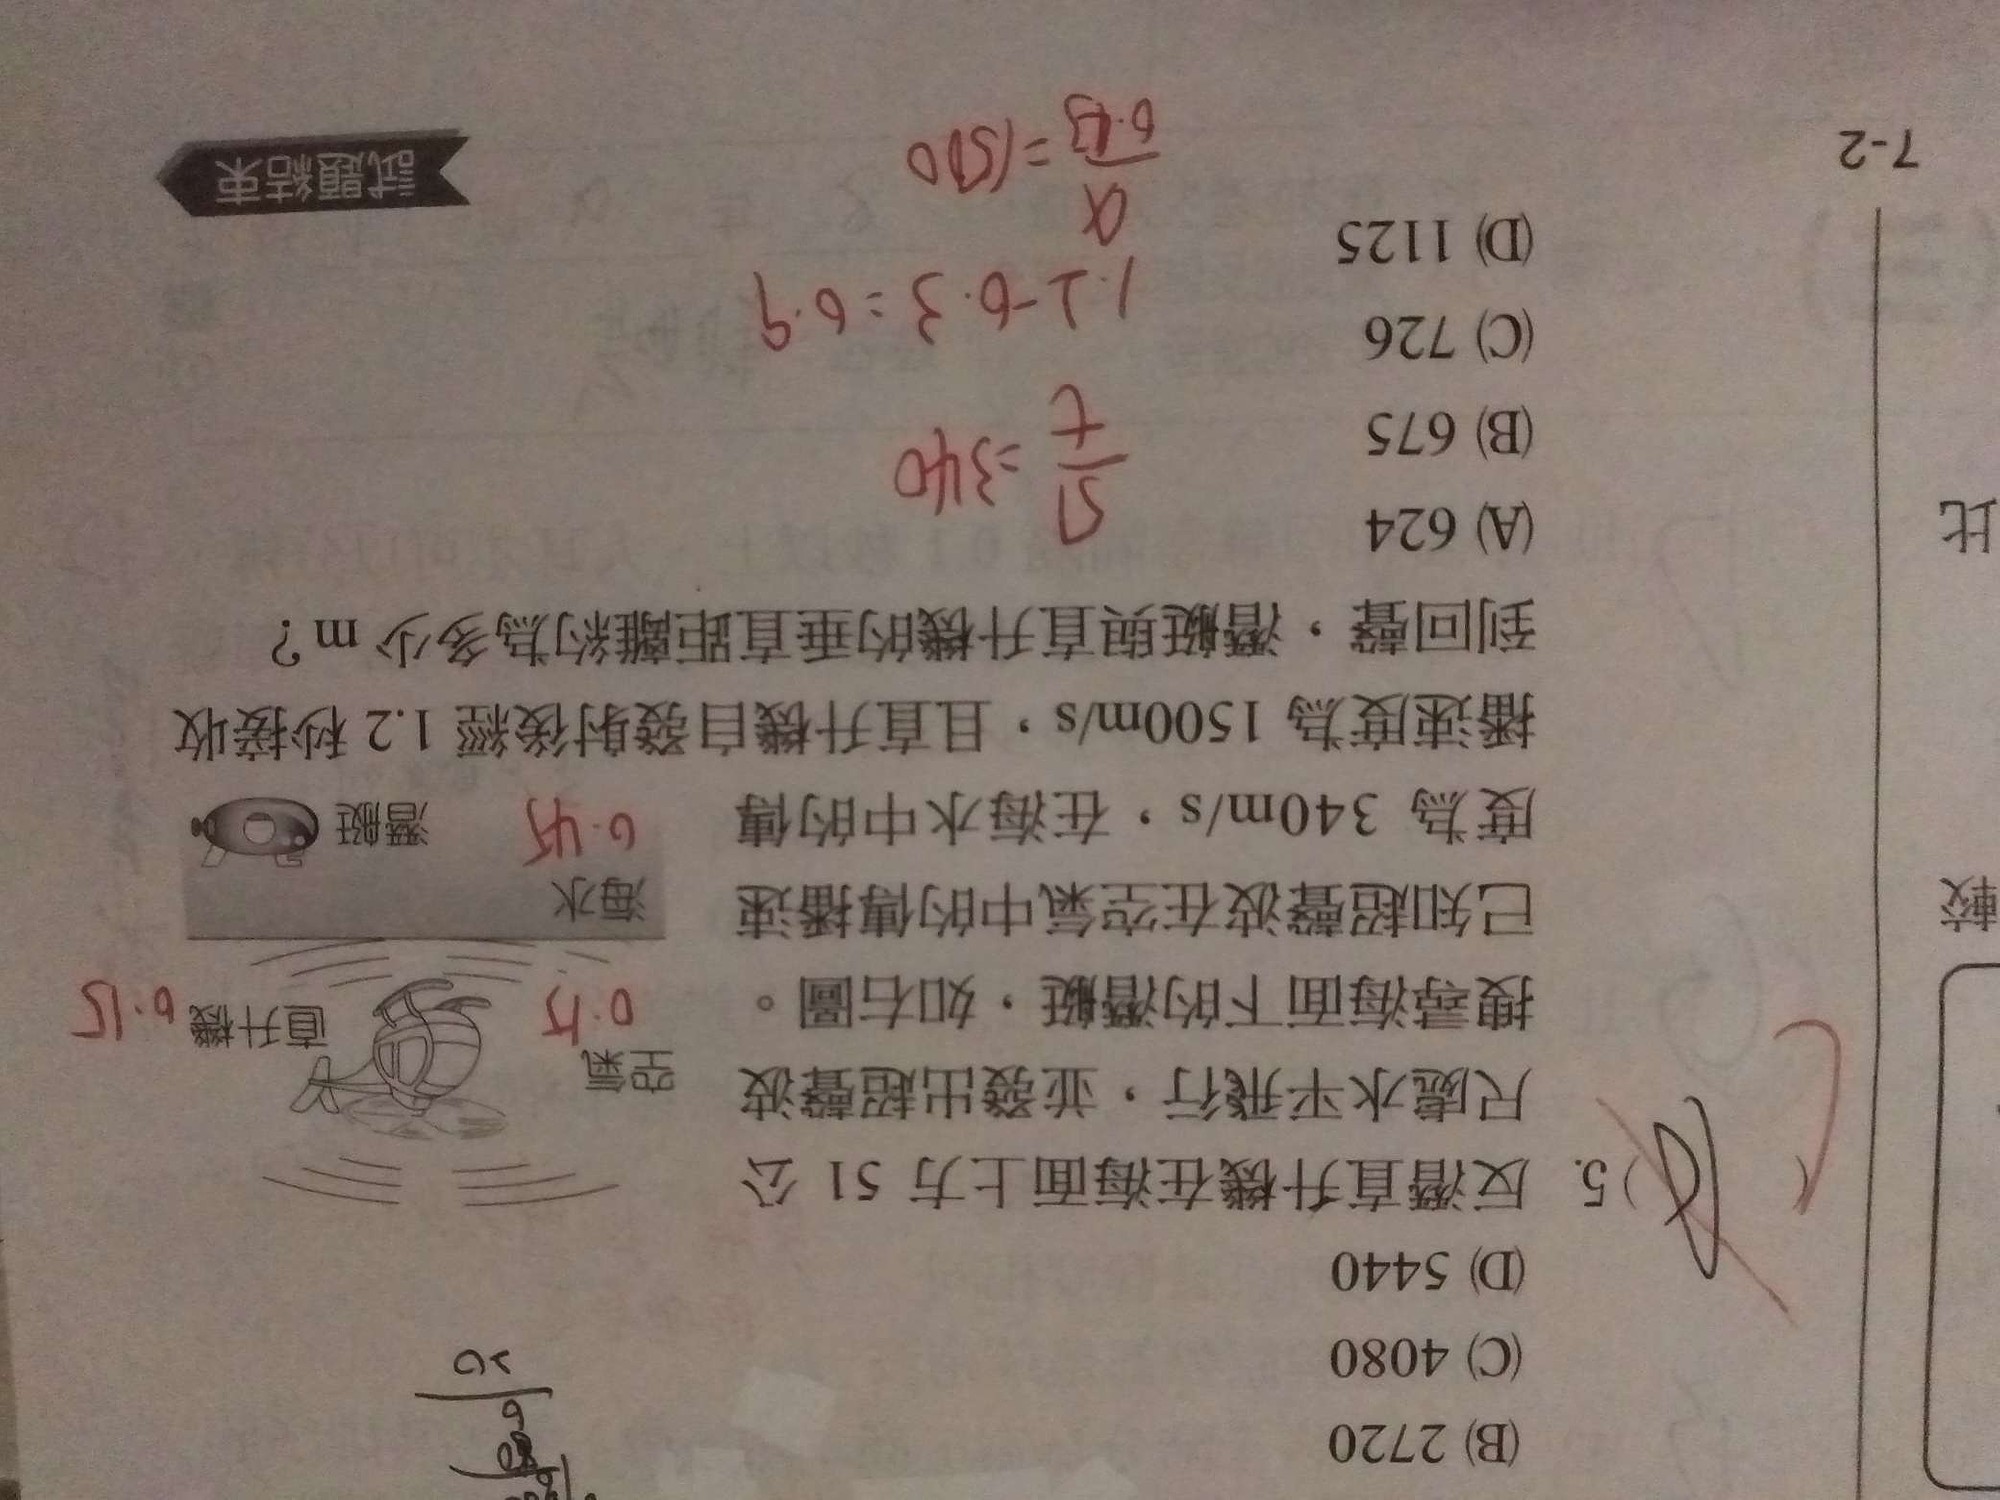 (B) 2720
(C) 4080
(D) 5440
( )5. 反潛直升機在海面上方 51 公
尺處水平飛行，並發出超聲波
搜尋海面下的潛艇，如右圖。
已知超聲波在空氣中的傳播速
度為 340m/s，在海水中的傳
播速度為 1500m/s，且直升機自發射後經 1.2 秒接收
到回聲，潛艇與直升機的垂直距離約為多少 m？
(A) 624
(B) 675
(C) 726
(D) 1125
空氣
0.15
直升機
0.15
海水
0.45
潛艇
51/t =340
1.2-0.3=0.9
=1500
7-2
試題結束
較
比